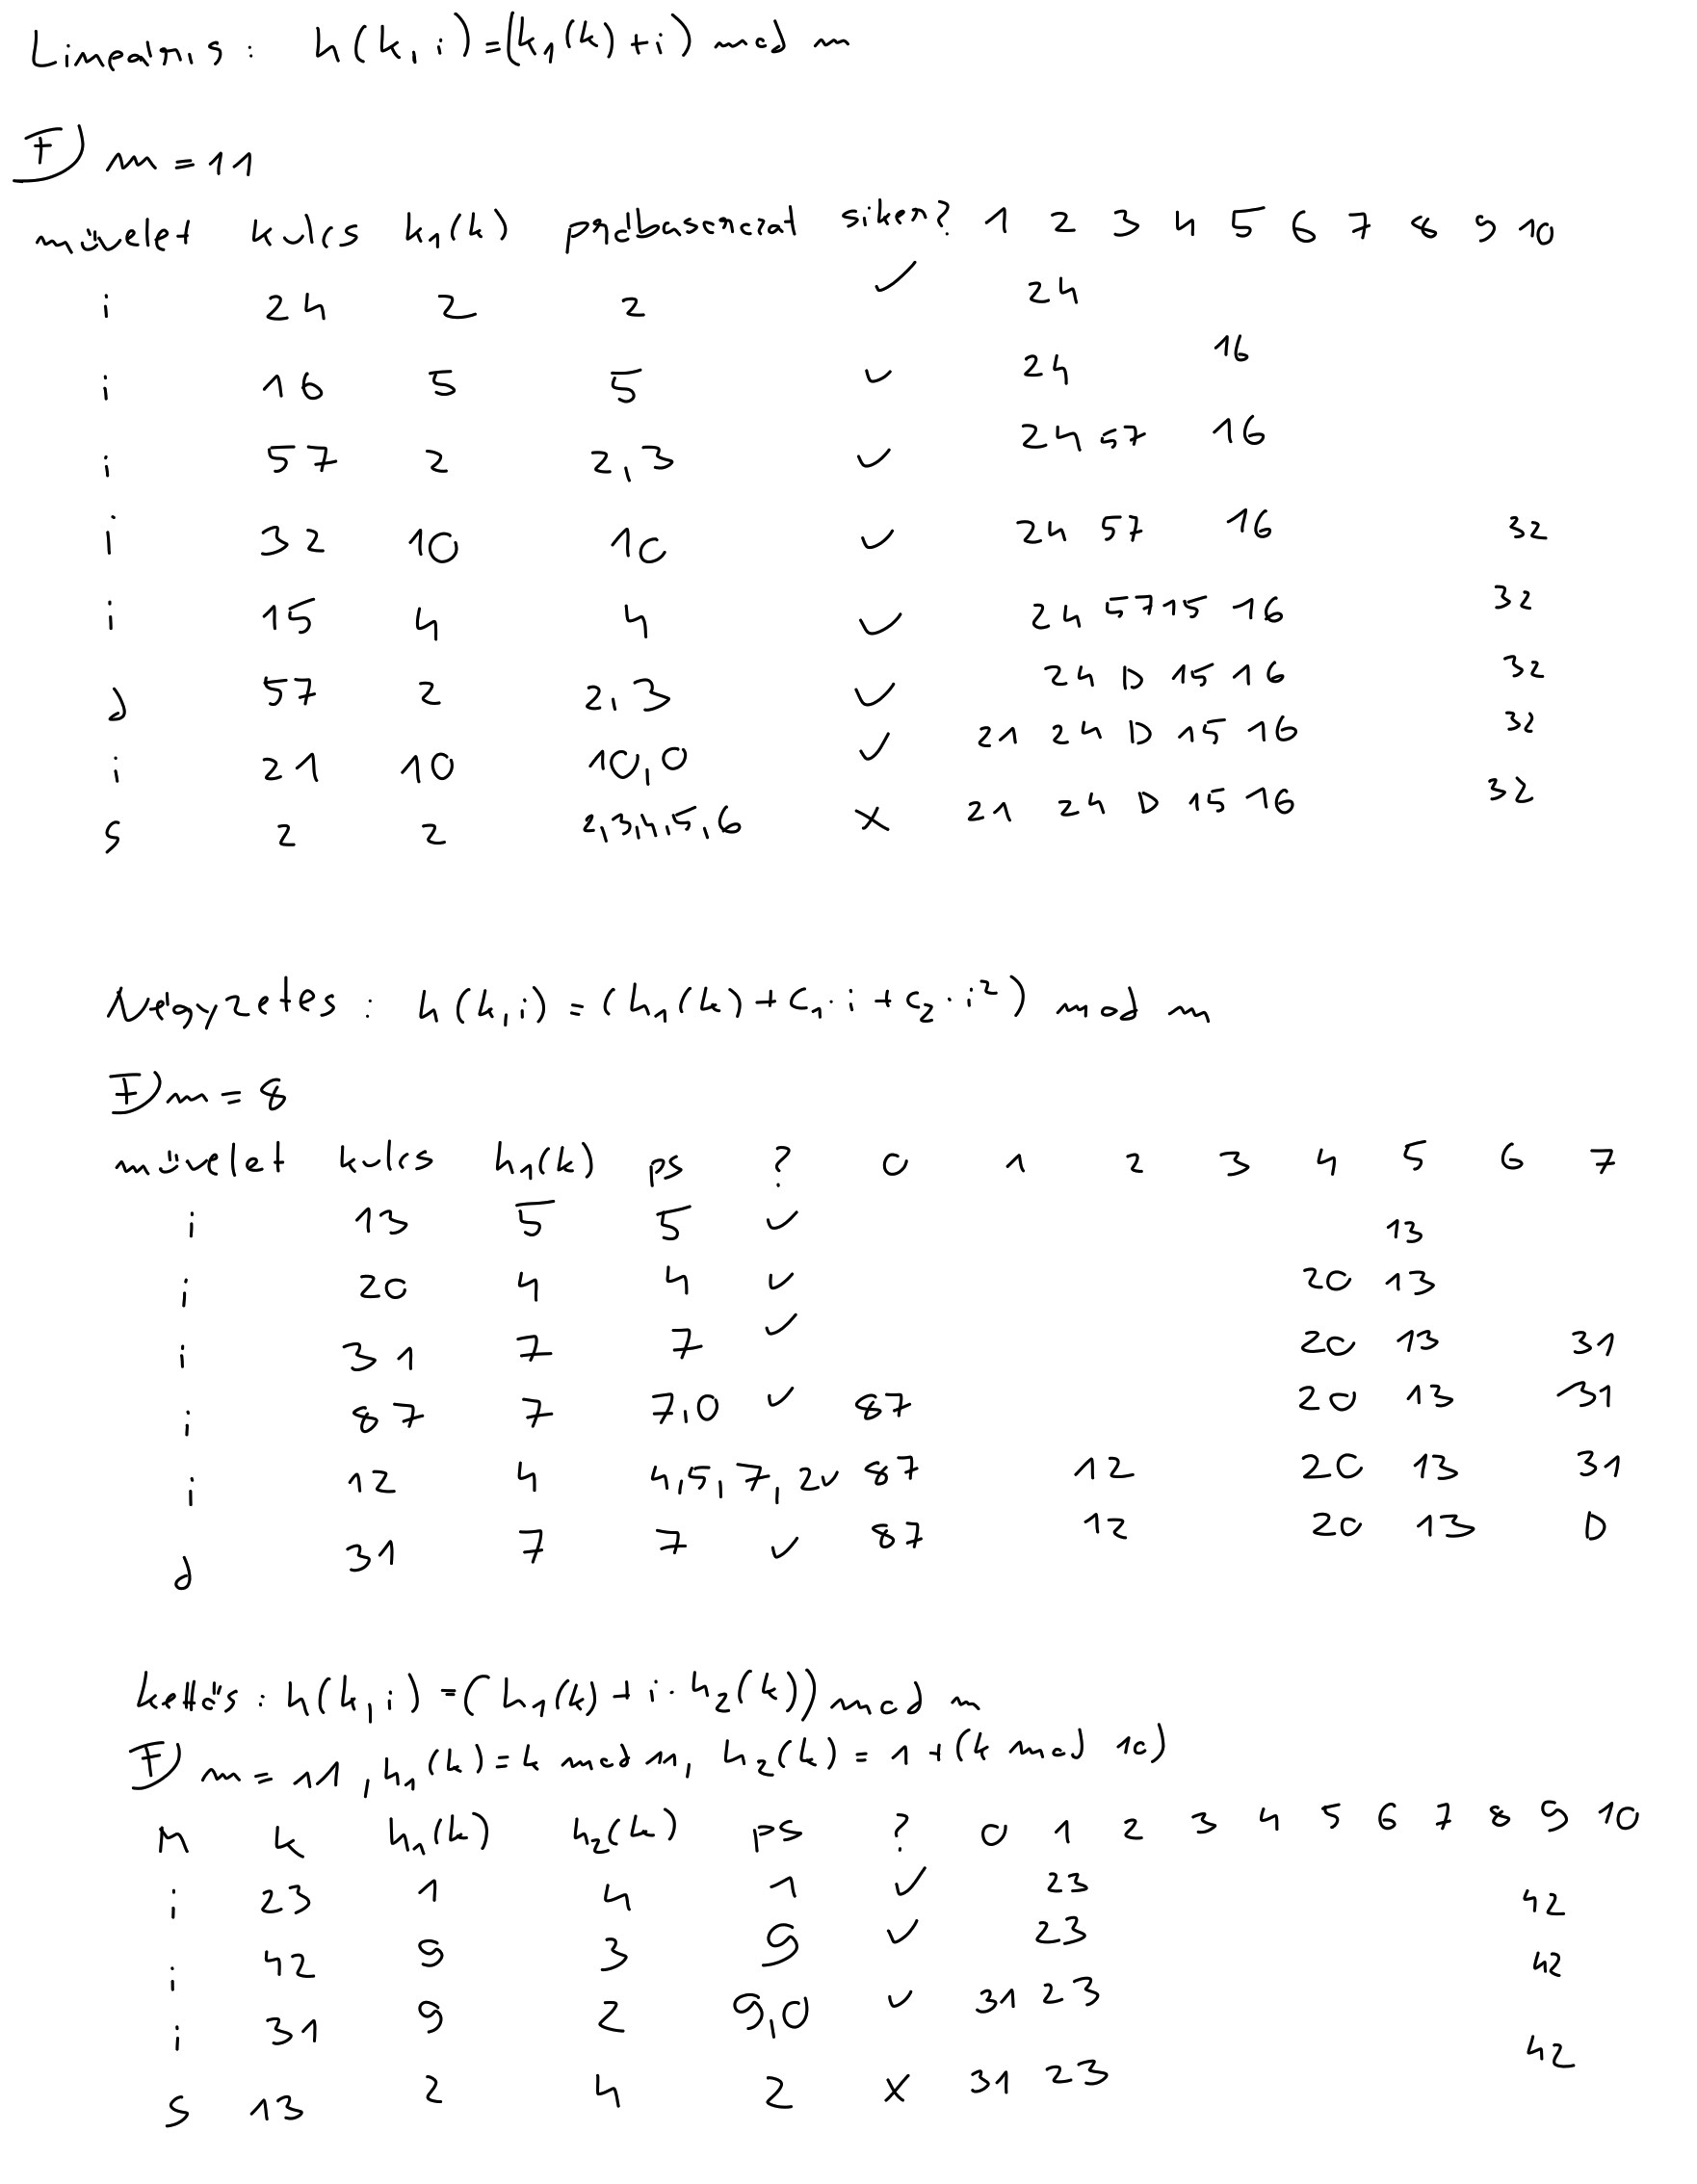 Lineáris: h(k,i)=(k₁(k)+i) mod m
F) m=11
művelet kulcs k₁(k) próbasorozat siker? 1 2 3 4 5 6 7 8 9 10
i 24 2 2 ✓ 24
i 16 5 5 ✓ 24 16
i 57 2 2,3 ✓ 24 57 16
i 32 10 10 ✓ 24 57 16 32
i 15 4 4 ✓ 24 57 15 16 32
d 57 2 2,3 ✓ 24 D 15 16 32
i 21 10 10,0 ✓ 21 24 D 15 16 32
s 2 2 2,3,4,5,6 x 21 24 D 15 16 32
Négyzetes: h(k,i)=(h₁(k)+c₁·i+c₂·i²) mod m
F) m=8
művelet kulcs h₁(k) ps ? 0 1 2 3 4 5 6 7
i 13 5 5 ✓ 13
i 20 4 4 ✓ 20 13
i 31 7 7 ✓ 20 13 31
i 87 7 7,0 ✓ 87 20 13 31
i 12 4 4,5,7,2 ✓ 87 12 20 13 31
d 31 7 7 ✓ 87 12 20 13 D
kettős: h(k,i)=(h₁(k)+i·h₂(k)) mod m
F) m=11, h₁(k)=k mod 11, h₂(k)=1+(k mod 10)
M k h₁(k) h₂(k) ps ? 0 1 2 3 4 5 6 7 8 9 10
i 23 1 4 1 ✓ 23
i 42 9 3 9 ✓ 23 42
i 31 9 2 9,0 ✓ 31 23 42
s 13 2 4 2 x 31 23 42